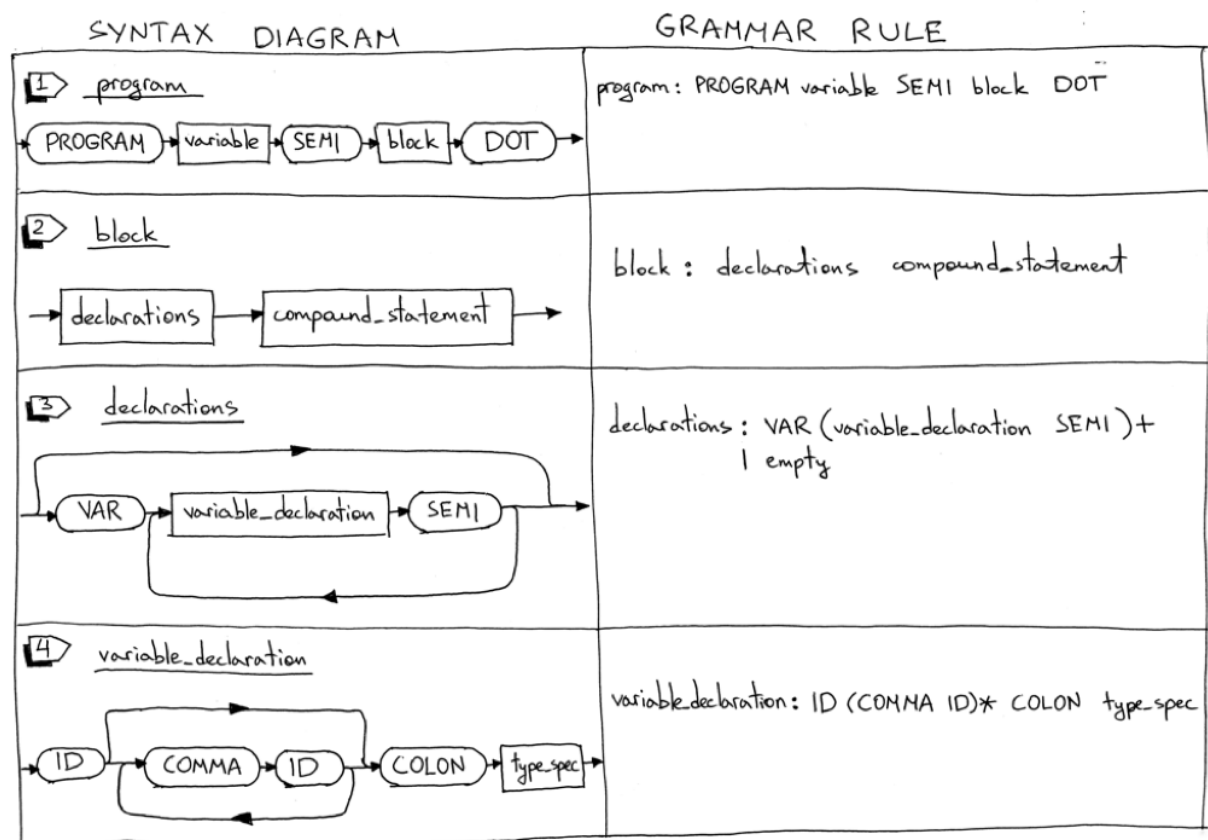 SYNTAX DIAGRAM
GRAMMAR RULE
1 program
PROGRAM variable SEMI block DOT
program: PROGRAM variable SEMI block DOT
2 block
declarations compound_statement
block: declarations compound_statement
3 declarations
VAR variable_declaration SEMI
declarations: VAR (variable_declaration SEMI)+
| empty
4 variable_declaration
ID COMMA ID COLON type_spec
variable_declaration: ID (COMMA ID)* COLON type_spec